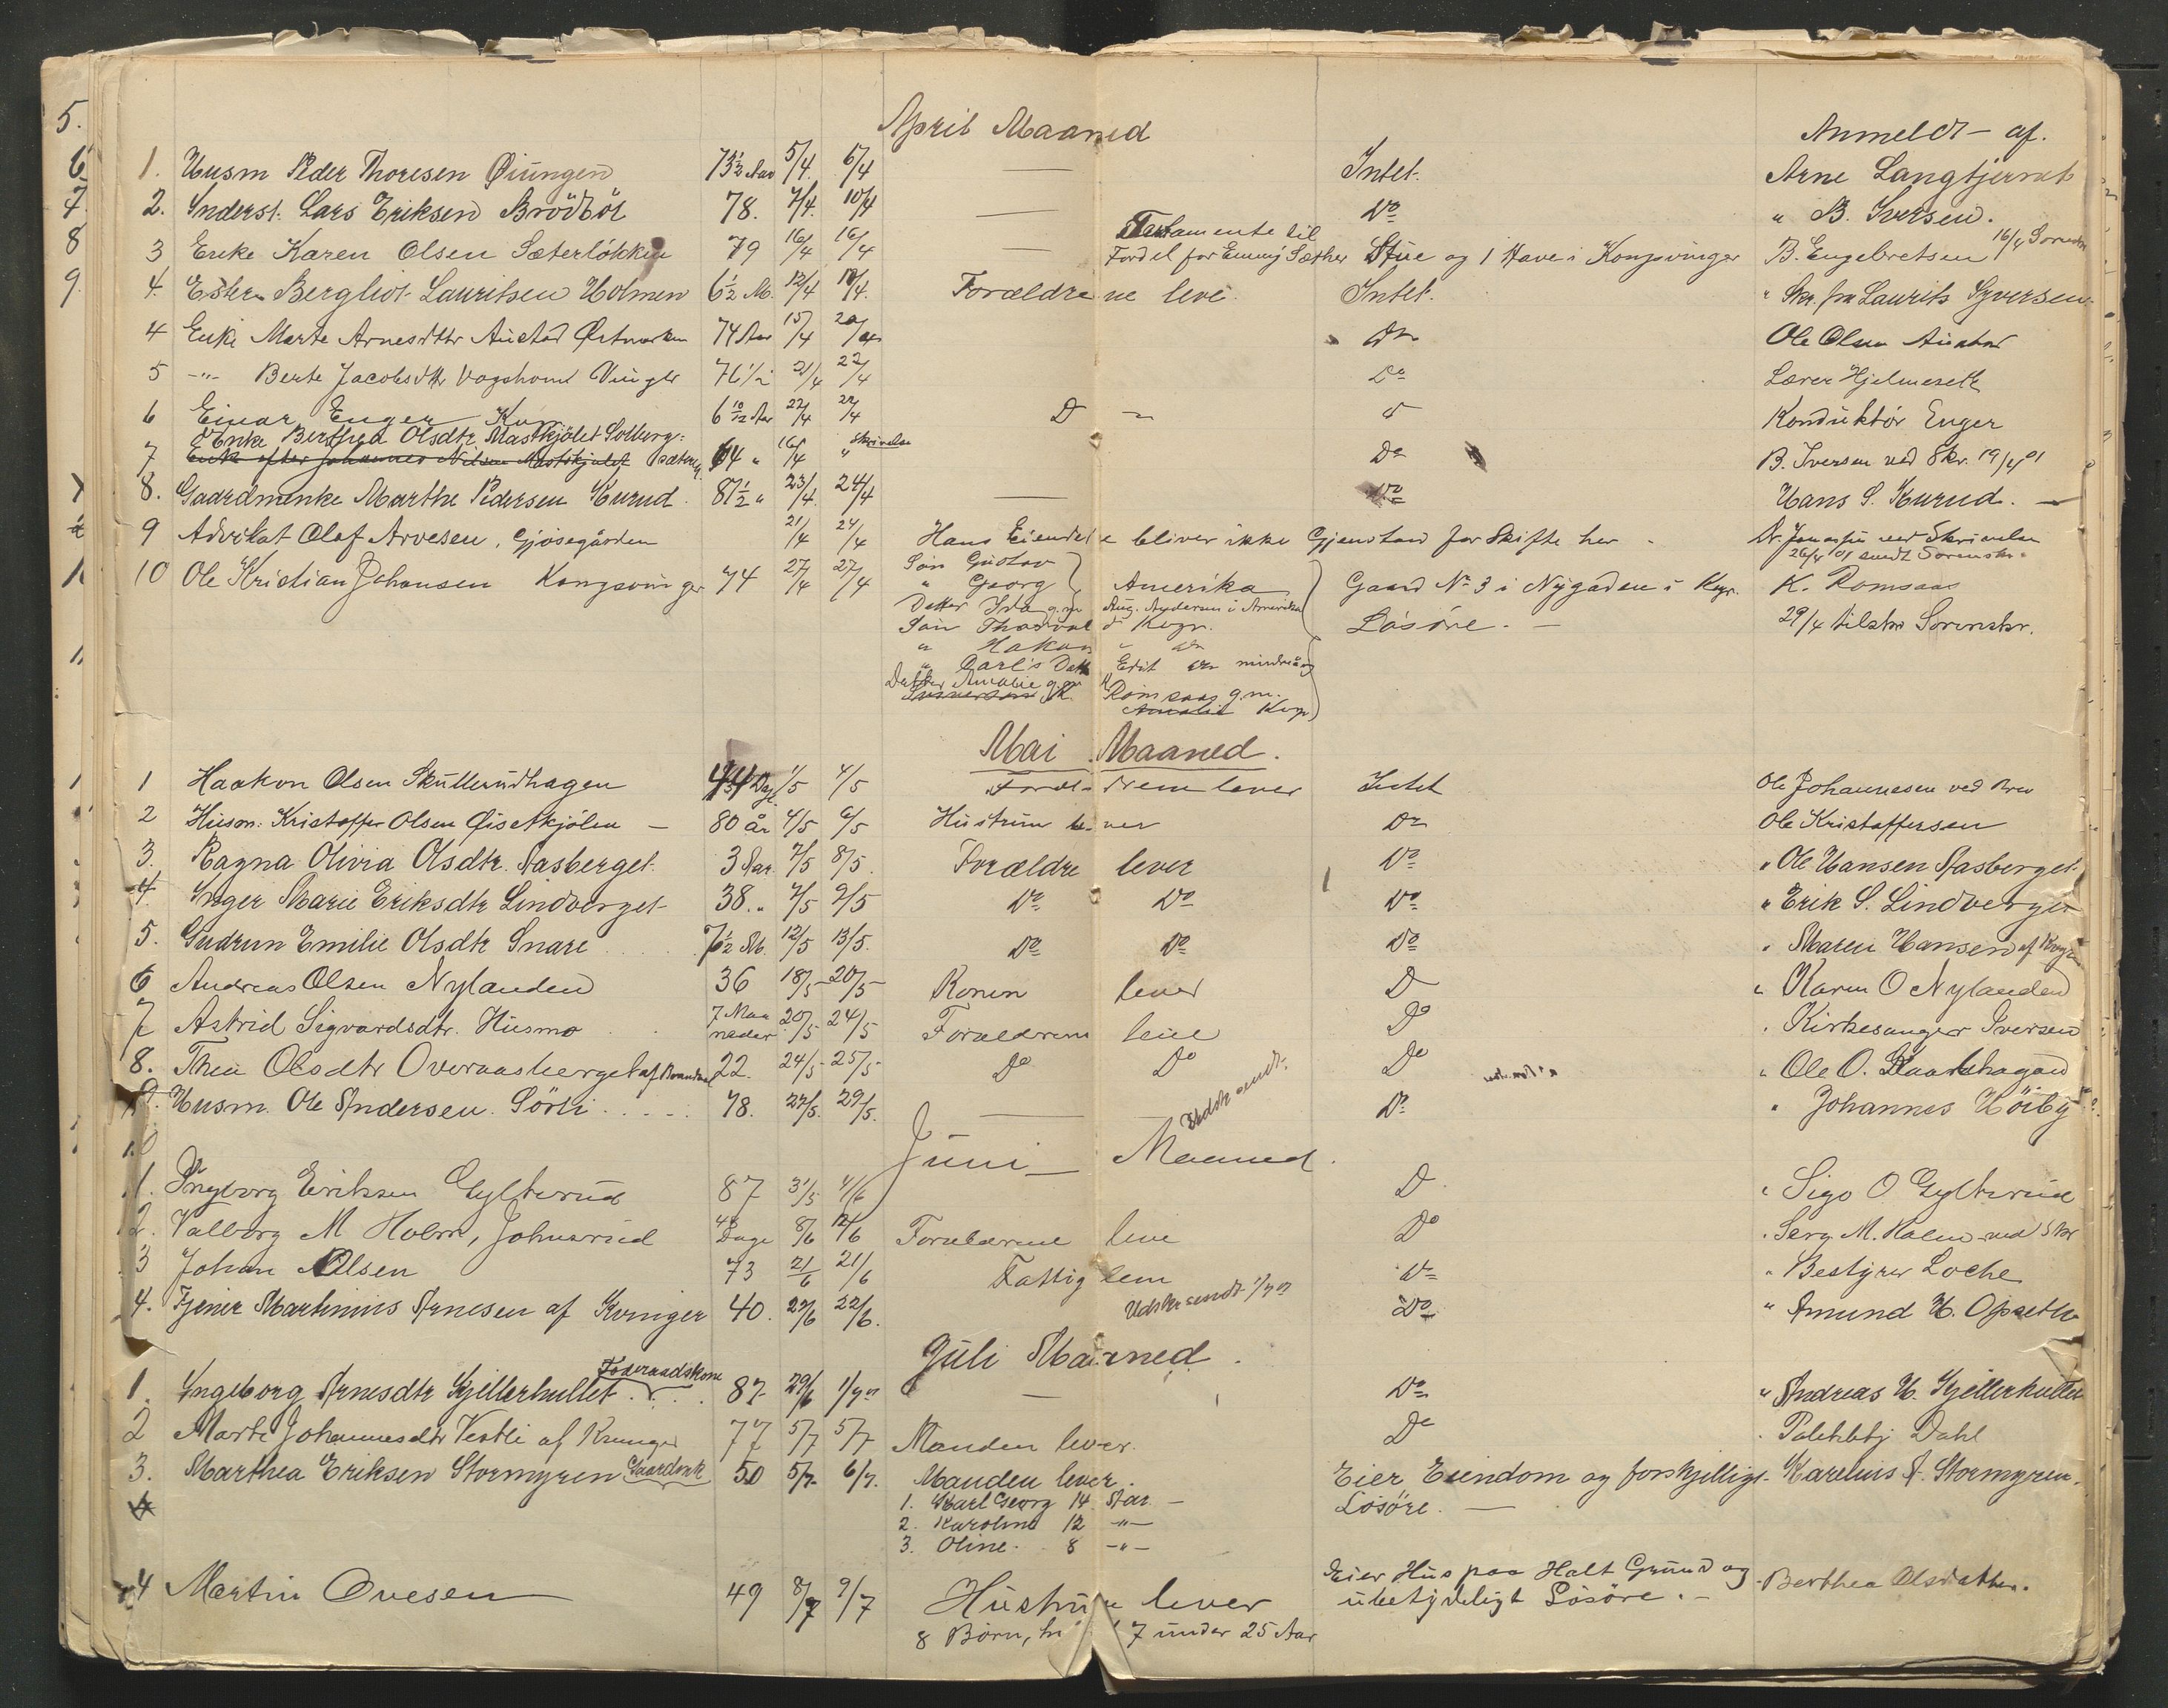 April Maaned
Anmeldt af.
1. Husm Peder Thoresen Øiungen 73½ Aar 5/4. 6/4 — Intet. Arne Langtjernet
2. Inderst. Lars Eriksen Brödböl 78. 7/4. 10/4 — Do " B. Iversen.
3 Enke Karen Olsen Sæterlökken 79 16/4 16/4 — Testamente til
Fordel for Emmy Sæther Stue og 1 Have i Kongsvinger B. Engebretsen 16/4
4. Ester Bergliot Lauritsen Holmen 6½ M. 12/4 Forældrene leve. Intet. " Skr. fra Laurits Syversen
4 Enke Marte Arnesdtr Austad Østmarken 74 Aar 15/4 Do Ole Olsen Austad
5 -"- Berte Jacobsdtr Vinger 76½ 21/4 22/4 Do Lærer Hjelmeseth
6 Einar Enger 6 10/12 Aar 22/4 22/4 D Konduktör Enger
Enke Berthea Olsdtr. Mastkjölet Solberg:
7 Enke efter Johannes Nilsen Mastkjölet sæteren 64 " 16/4 " Skrivelse Do B. Iversen ved Skr. 19/4 01
8. Gaardmenke Marthe Pedersen Kurud. 81½ " 23/4. 24/4 — Do Hans S. Kurud. —
9 Advokat Olaf Arvesen, Gjøsegården 21/4 24/4 Hans Eiendele bliver ikke Gjenstand for Skifte her. ved Skrivelse
26/4 01 sendt Sorenskr.
10 Ole Kristian Johansen Kongsvinger 74 27/4 27/4 Sön Gustav
" Georg Amerika Gaard No 3 i Nygaden i Kgvr. K. Romsaas
Datter Ida g.m. Aug. Andersen i Amerika
Sön Thorval d Kvgr. Lösöre. — 29/4 tilskr Sorenskr.
" Hakon " do
" Carl's Datter Edit do mindreårig
Datter Amalie g.m.
K. Romsaas g.m.
Amalie Kvgr
Mai Maaned.
1 Haakon Olsen Skullerudhagen Dage 1/5 4/5 Forældrene lever Intet Ole Johannesen ved Brev
2 Husm: Kristoffer Olsen Øisetkjölen — 80 år 4/5 6/5 Hustrun lever Do Ole Kristoffersen
3. Ragna Olivia Olsdtr. Aasberget. 3 Aar 7/5 8/5. Forældre lever Do " Ole Hansen Aasberget.
4. Inger Marie Eriksdtr Lindberget 38. " 7/5 9/5 Do Do Do " Erik S. Lindberget
5. Gudrun Emilie Olsdtr Snare 7½ M. 12/5 13/5. Do Do Do " Maren Hansen af Kvgr
6 Andreas Olsen Nylanden 36 18/5 20/5 Konen lever D " Karen O Nylanden
7 Astrid Sigvardsdtr. Husmo 7 Maa
neder 20/5 24/5 Forældrene leve Do " Kirkesanger Iversen
8. Thea Olsdtr Overaasberget af Brandval 22. 24/5 25/5 Do Do Do " Ole O.
9. Husm. Ole Andersen. Sörli 78. 27/5. 29/5. — Do " Johannes Höiby
Udskr sendt.
10
Juni Maaned.
1. Ingborg Eriksen Gylterud 87 31/5 4/6 D " Sigv O Gylterud
2. Valborg M Holm, Johnsrud Dage 8/6 12/6 Forældrene leve Do " Serg. M. Holm ved Skr
3 Johan Olsen 73 21/6 21/6 Fattiglem Do " Bestyrer Loche
4. Tjener Martinius Arnesen af Kvinger 40. 22/6. Udskr sendt 1/7 01 Do " Amund H. Opseth
Juli Maaned.
Foderaadskone
1. Ingeborg Arnesdtr Kjellerhullet 87 29/6 1/7 01 — Do " Andreas H. Kjellerhullet
2 Marte Johannesdtr Vestli af Kvinger 77 5/7 5/7 Manden lever. Do Dahl
3. Marthea Eriksen Stormyren 50 5/7. 6/7. Manden lever. Eier Eiendom og forskjelligt Karelius A. Stormyren.
1. Karl Georg 14 Aar — Lösöre. —
2. Karoline 12 -"-
3. Oline. 8 -"-
4 Martin Ovesen 49 8/7 9/7 Hustrun lever Eier Hus paa Halt Grund og
ubetydeligt Lösöre. — Berthea Olsdatter.
8 Børn, 7 under 25 Aar